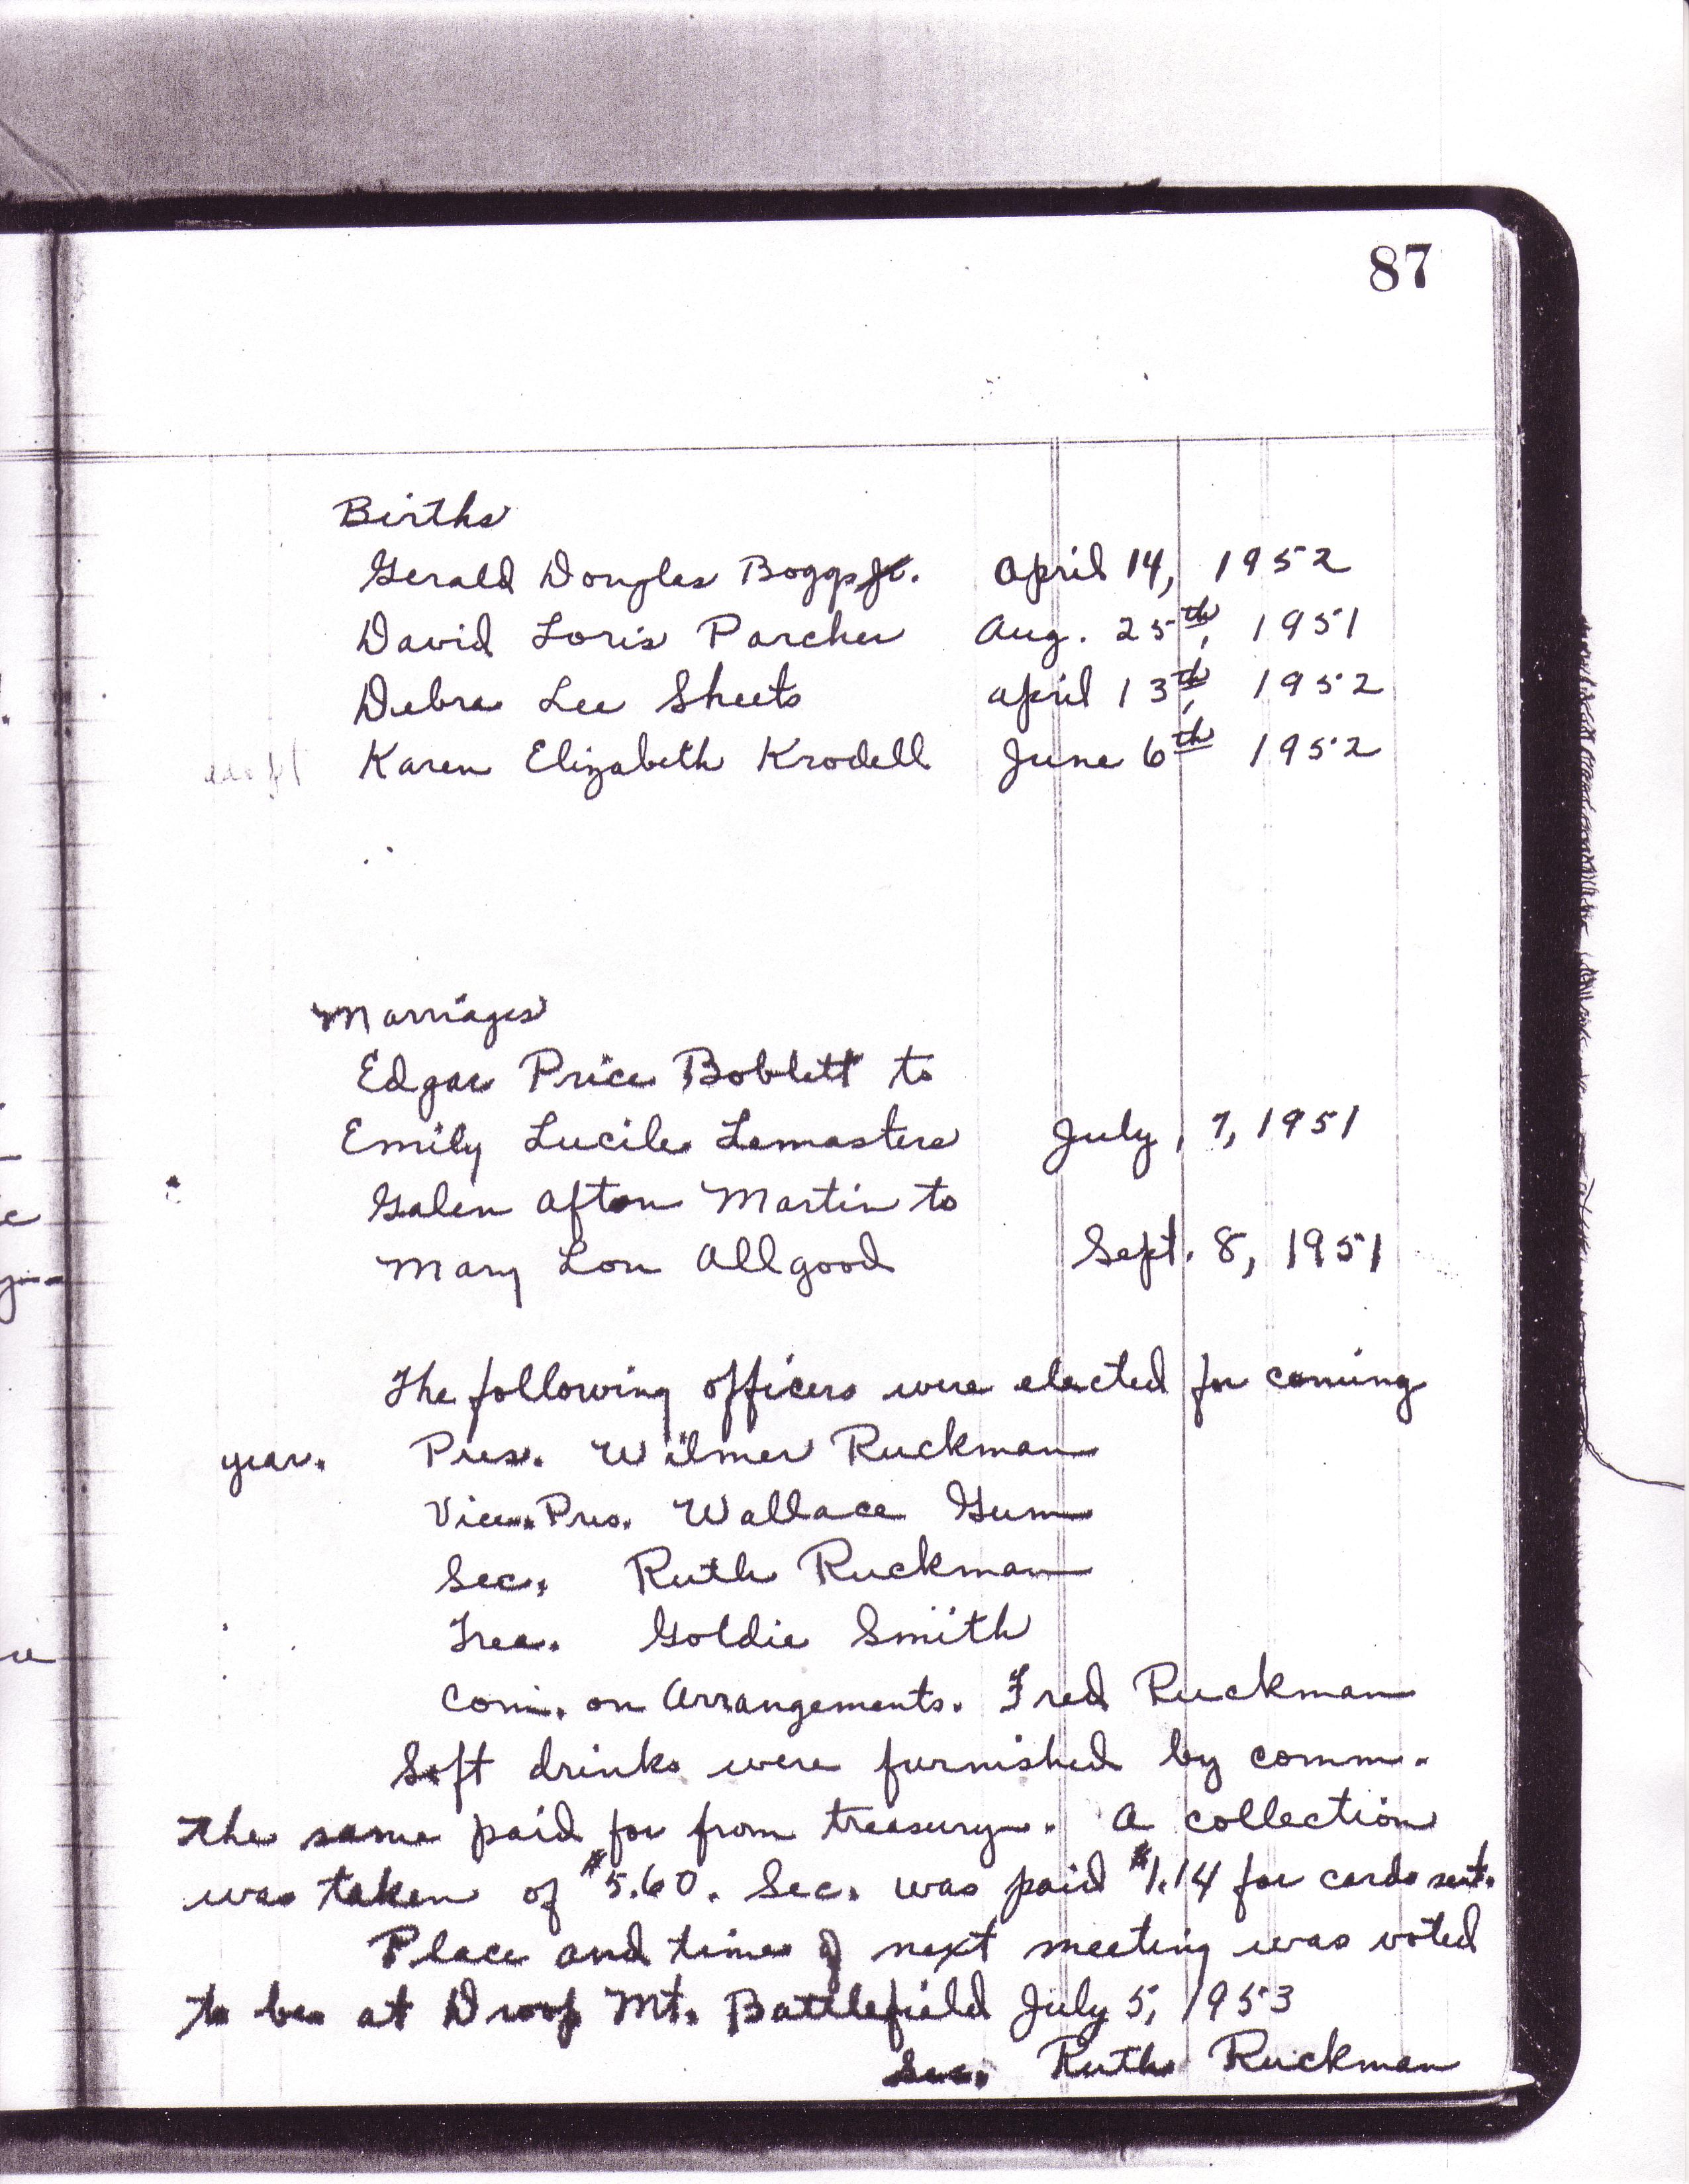 87
Births
Gerald Douglas Boggs Jr. April 14, 1952
David Loris Parcher Aug. 25th, 1951
Debra Lee Sheets April 13th, 1952
Karen Elizabeth Krodell June 6th 1952
Marriages
Edgar Price Boblett to
Emily Lucile Lemasters July, 7, 1951
Galen Afton Martin to
Mary Lou Allgood Sept. 8, 1951
The following officers were elected for coming
year. Pres. Wilmer Ruckman
Vice. Pres. Wallace Gum
Sec. Ruth Ruckman
Trea. Goldie Smith
Com. on Arrangements. Fred Ruckman
Soft drinks were furnished by comm.
the same paid for from treasury. A collection
was taken of $5.60. Sec. was paid $1.14 for cards sent.
Place and time of next meeting was voted
to be at Droop Mt. Battlefield July 5, 1953
Sec. Ruth Ruckman